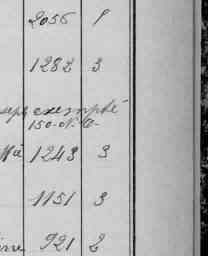 2056 1
1282 3
exempté
150-N.-B-
1243 3
1151 3
921 2